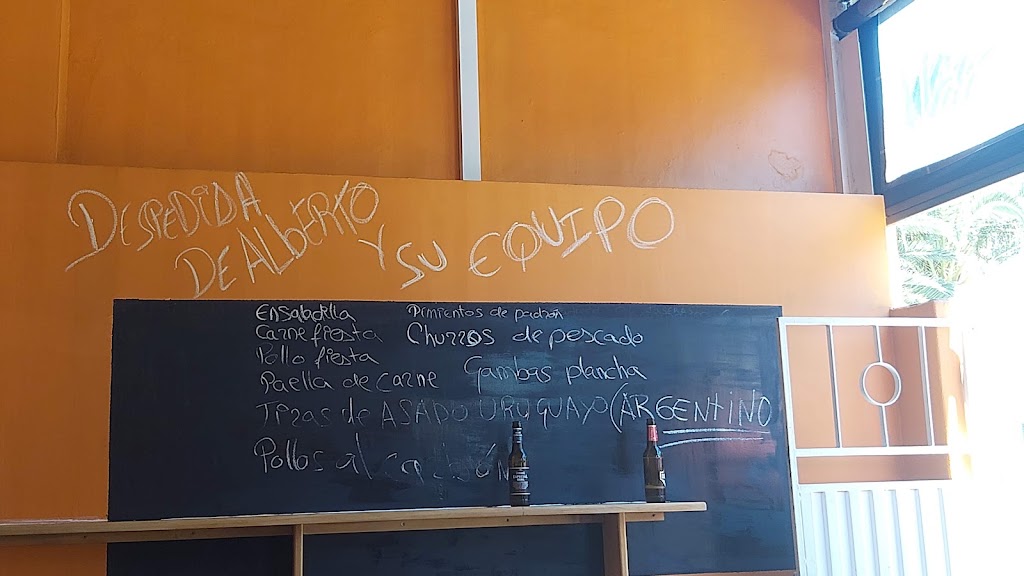 DESPEDIDA
DE ALBERTO
Y SU EQUIPO
Ensaladilla
Pimientos de padrón
Carne fiesta
Churros de pescado
Pollo fiesta
Gambas plancha
Paella de carne
Tiras de ASADO URUGUAYO (ARGENTINO
Pollos al